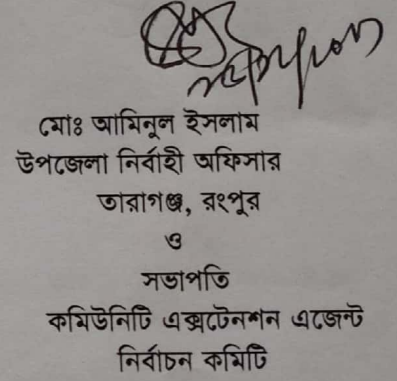 মোঃ আমিনুল ইসলাম
উপজেলা নির্বাহী অফিসার
তারাগঞ্জ, রংপুর
ও
সভাপতি
কমিউনিটি এক্সটেনশন এজেন্ট
নির্বাচন কমিটি